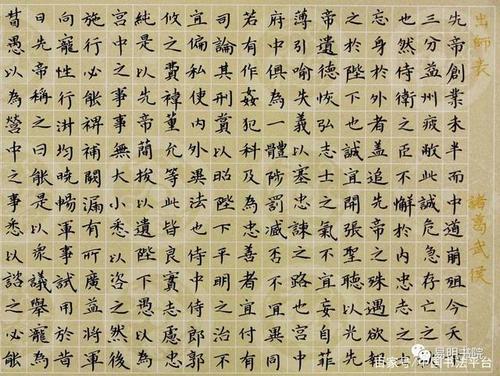 出師表 諸葛武侯
先帝創業未半而中道崩殂今天下
三分益州疲敝此誠危急存亡之
也然侍衛之臣不懈於內忠志之
忘身於外者蓋追先帝之殊遇欲
之於陛下也誠宜開張聖聽以光先
帝遺德恢弘志士之氣不宜妄自菲
薄引喻失義以塞忠諫之路也宮中
府中俱為一體陟罰臧否不宜異同
若有作姦犯科及為忠善者宜付有
司論其刑賞以昭陛下平明之治不
宜偏私使內外異法也侍中侍郎郭
攸之費禕董允等此皆良實志慮忠
純是以先帝簡拔以遺陛下愚以為
宮中之事事無大小悉以咨之然後
施行必能裨補闕漏有所廣益將軍
向寵性行淑均曉暢軍事試用於昔
日先帝稱之曰能是以眾議舉寵為
督愚以為營中之事悉以諮之必能
易明書院
百家号/中国书法平台